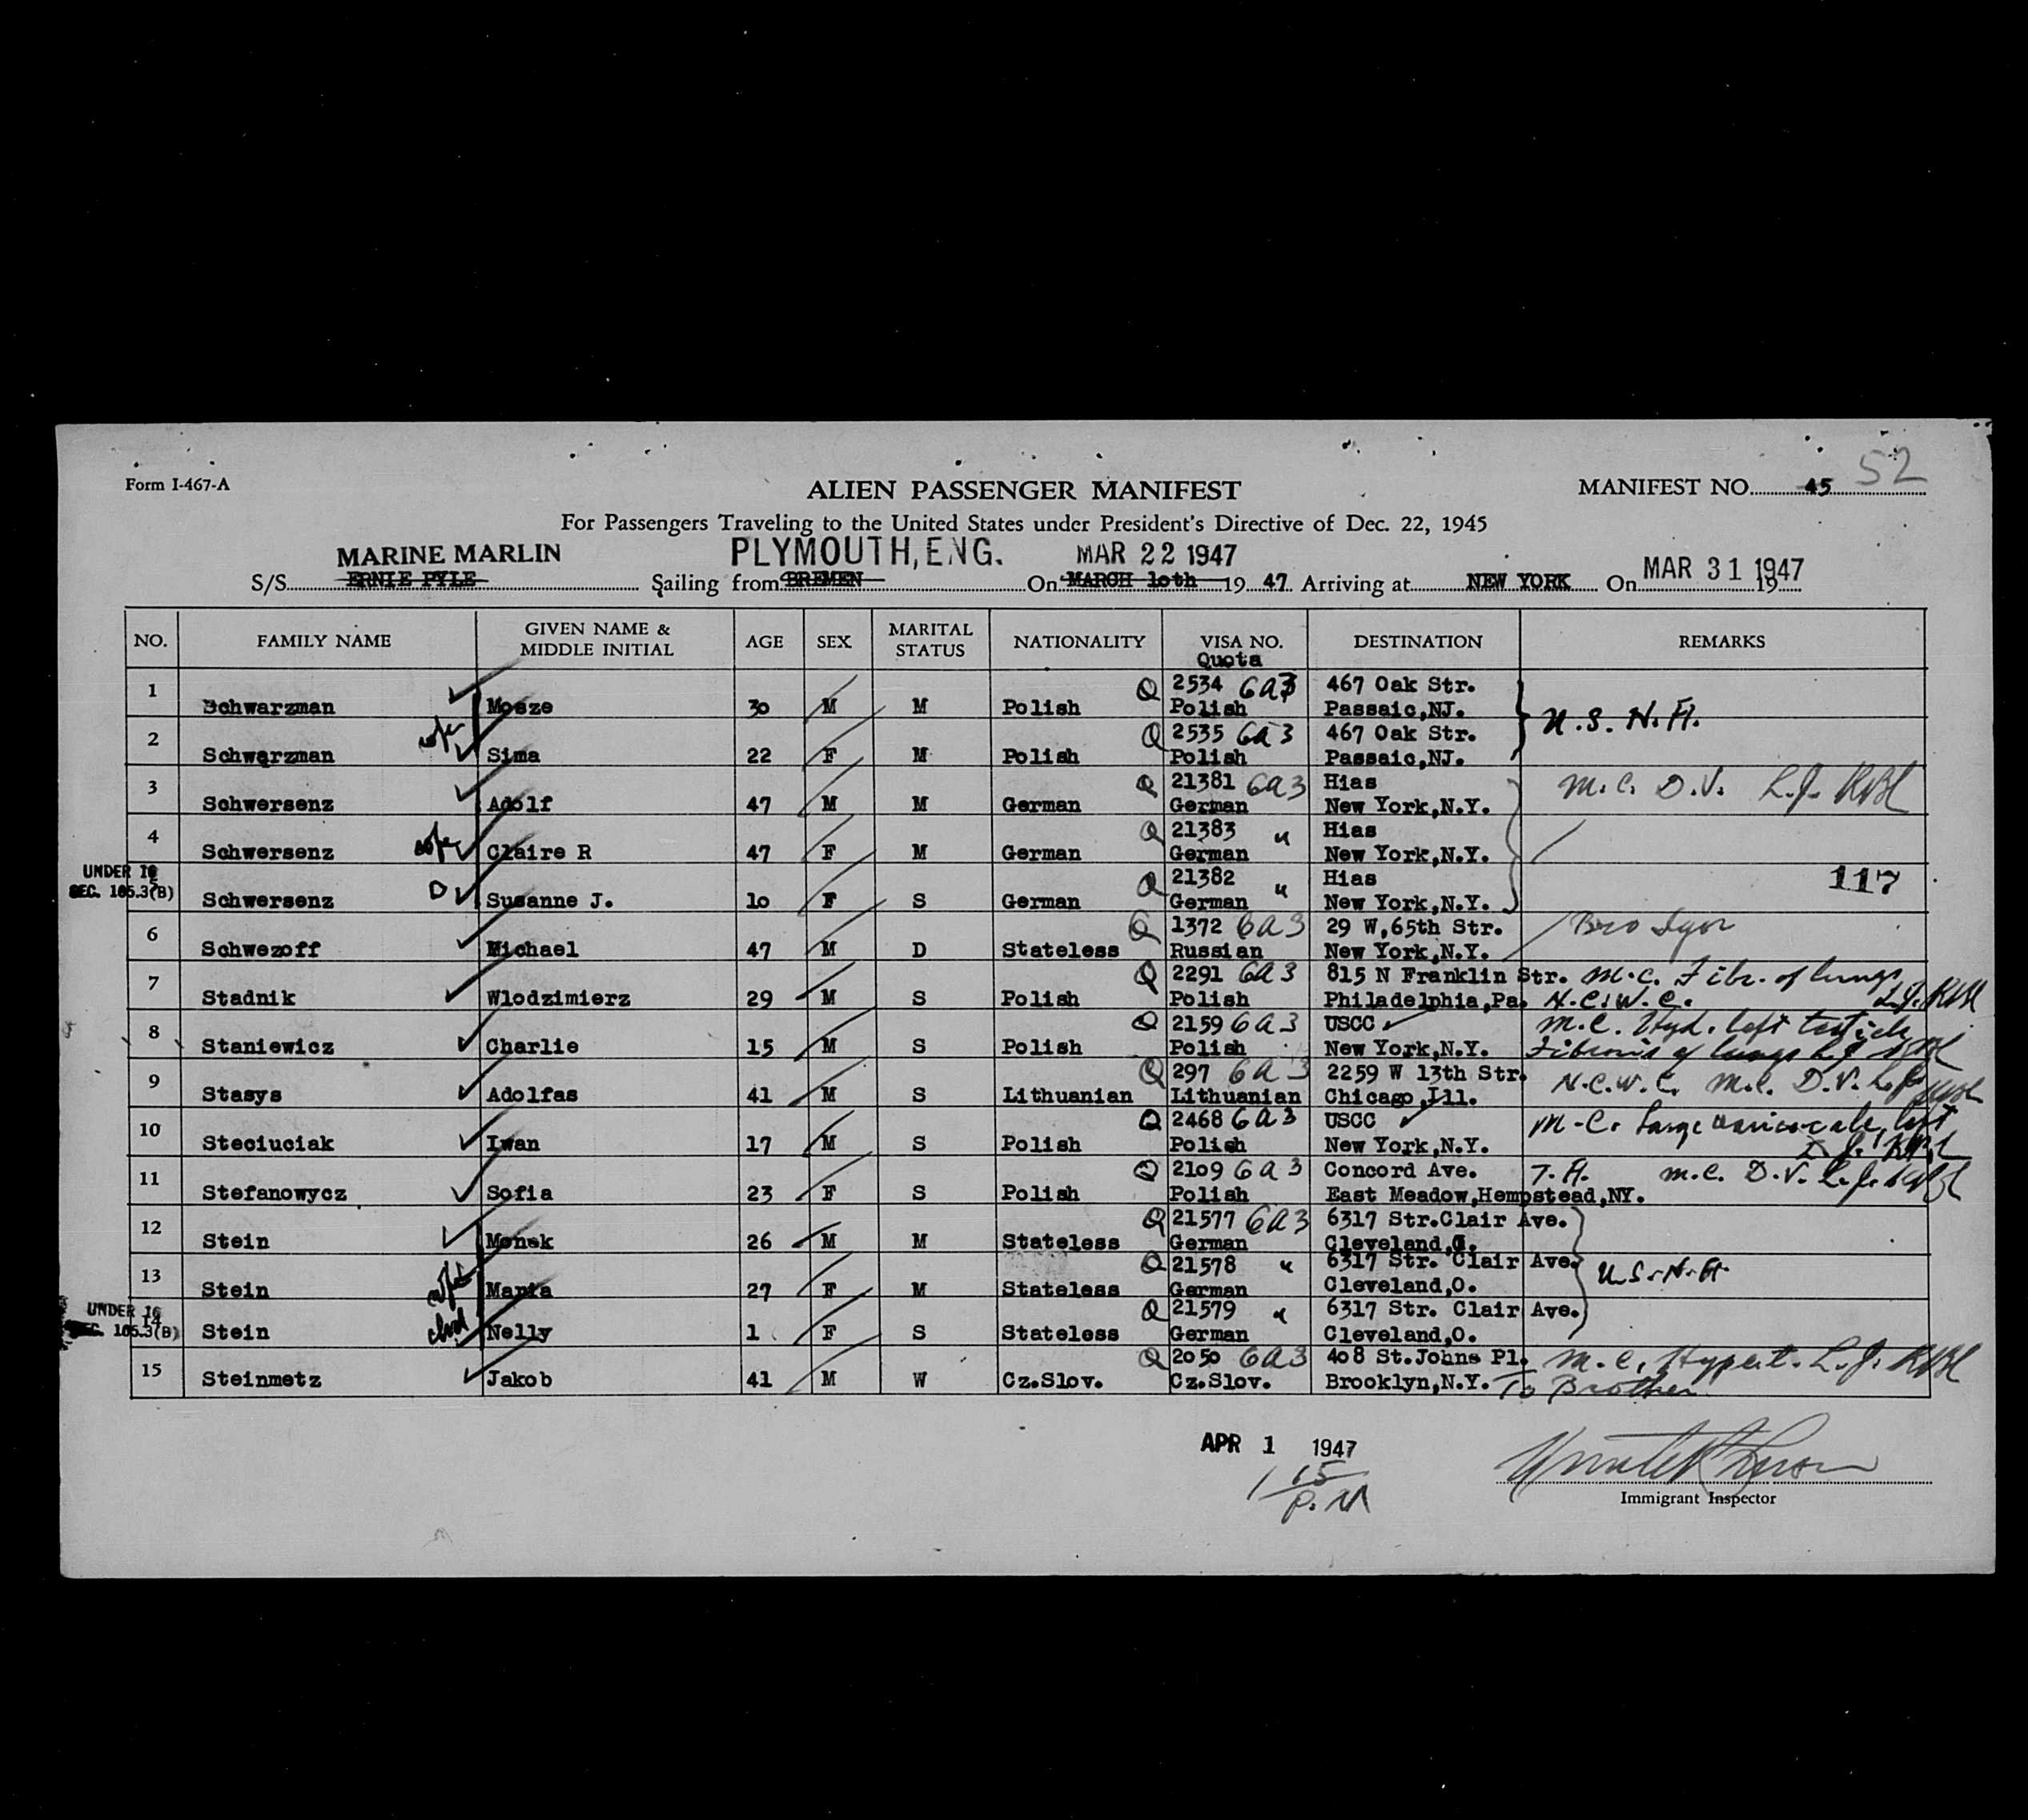 52
Form I-467-A
ALIEN PASSENGER MANIFEST
MANIFEST NO. 45
For Passengers Traveling to the United States under President's Directive of Dec. 22, 1945
MARINE MARLIN PLYMOUTH, ENG. MAR 22 1947 MAR 31 1947
S/S ERNIE PYLE Sailing from BREMEN On MARCH 10th 19 47 Arriving at NEW YORK On 19
NO. FAMILY NAME GIVEN NAME & MIDDLE INITIAL AGE SEX MARITAL STATUS NATIONALITY VISA NO. Quota DESTINATION REMARKS
1 Schwarzman Mosze 30 M M Polish Q 2534 6a3 Polish 467 Oak Str. Passaic,NJ. U.S.N.A.
2 Schwarzman wife Sima 22 F M Polish Q 2535 6a3 Polish 467 Oak Str. Passaic,NJ.
3 Schwersenz Adolf 47 M M German Q 21381 6a3 German Hias New York,N.Y. M.C. D.V. L.J. RBH
4 Schwersenz wife Claire R 47 F M German Q 21383 " German Hias New York,N.Y.
UNDER 16 SEC. 105.3(B) Schwersenz D Susanne J. 10 F S German Q 21382 " German Hias New York,N.Y. 117
6 Schwezoff Michael 47 M D Stateless Q 1372 6a3 Russian 29 W,65th Str. New York,N.Y. Bro Igor
7 Stadnik Wlodzimierz 29 M S Polish Q 2291 6a3 Polish 815 N Franklin Str. Philadelphia,Pa. M.C. Fibr. of lungs N.C.W.C. L.J. RBH
8 Staniewicz Charlie 15 M S Polish Q 2159 6a3 Polish USCC New York,N.Y. M.C. Hyd. left testicle Fibrosis of lungs L.J.
9 Stasys Adolfas 41 M S Lithuanian Q 297 6a3 Lithuanian 2259 W 13th Str. Chicago,Ill. N.C.W.C. M.C. D.V. L.J.
10 Steciuciak Iwan 17 M S Polish Q 2468 6a3 Polish USCC New York,N.Y. M.C. Large varicocele left L.J. RBH
11 Stefanowycz Sofia 23 F S Polish Q 2109 6a3 Polish Concord Ave. East Meadow,Hempstead,NY. T.A. M.C. D.V. L.J. RBH
12 Stein Monek 26 M M Stateless Q 21577 6a3 German 6317 Str.Clair Ave. Cleveland,O.
13 Stein wife Mania 27 F M Stateless Q 21578 " German 6317 Str. Clair Ave. Cleveland,O. U.S.N.A.
UNDER 16 SEC. 105.3(B) 14 Stein chd Nelly 1 F S Stateless Q 21579 " German 6317 Str. Clair Ave. Cleveland,O.
15 Steinmetz Jakob 41 M W Cz.Slov. Q 2050 6a3 Cz.Slov. 408 St.Johns Pl. Brooklyn,N.Y. M.C. Hypert. L.J. RBH To Brother
APR 1 1947
1 15 P.M
Immigrant Inspector